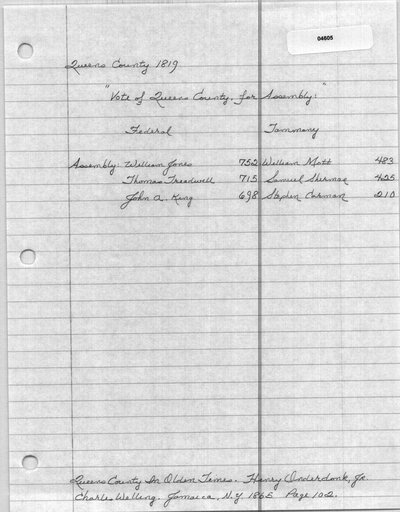 04605
Queens County 1819
"Vote of Queens County for Assembly:"
Federal Tammany
Assembly: William Jones 752 William Mott 483
Thomas Treadwell 715 Samuel Sherman 425
John A. King 698 Stephen Carman 210
Queens County In Olden Times. Henry Onderdonk, Jr.
Charles Welling. Jamaica, N.Y. 1865 Page 102.